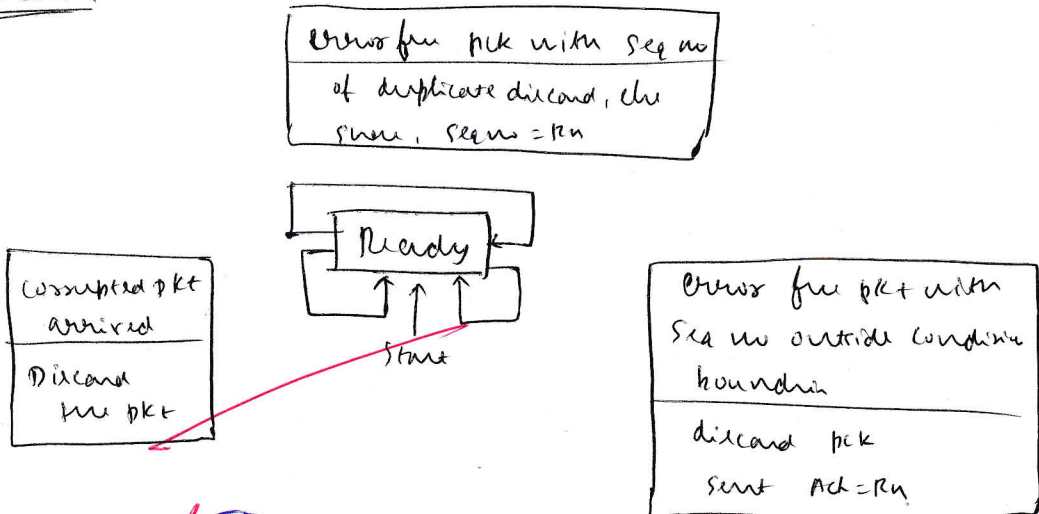 error free pck with seq no
of duplicate discard, else
store, seq no = Rn
Ready
Start
corrupted pkt
arrived
Discard
the pkt
error free pkt with
Seq no outside
discard pck
sent Ack=Rn